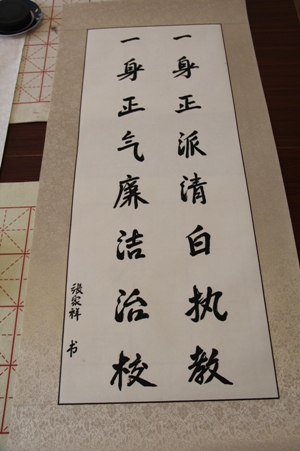 一身正派清白执教
一身正气廉洁治校
張家祥 书